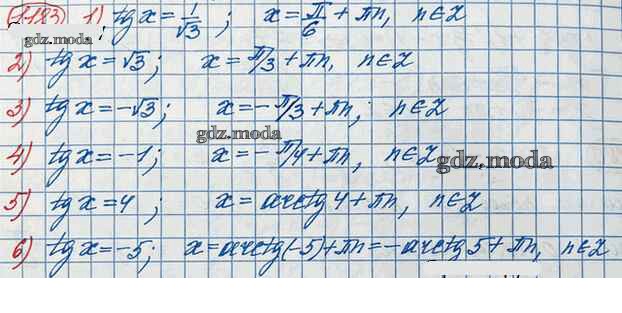 1) tg x = 1/√3 ; x = π/6 + πn, n∈Z
gdz.moda
2) tg x = √3; x = π/3 + πn, n∈Z
3) tg x = -√3; x = -π/3 + πn, n∈Z
gdz.moda
4) tg x = -1; x = -π/4 + πn, n∈Z
gdz.moda
5) tg x = 4 ; x = arctg 4 + πn, n∈Z
6) tg x = -5; x = arctg(-5) + πn = -arctg 5 + πn, n∈Z